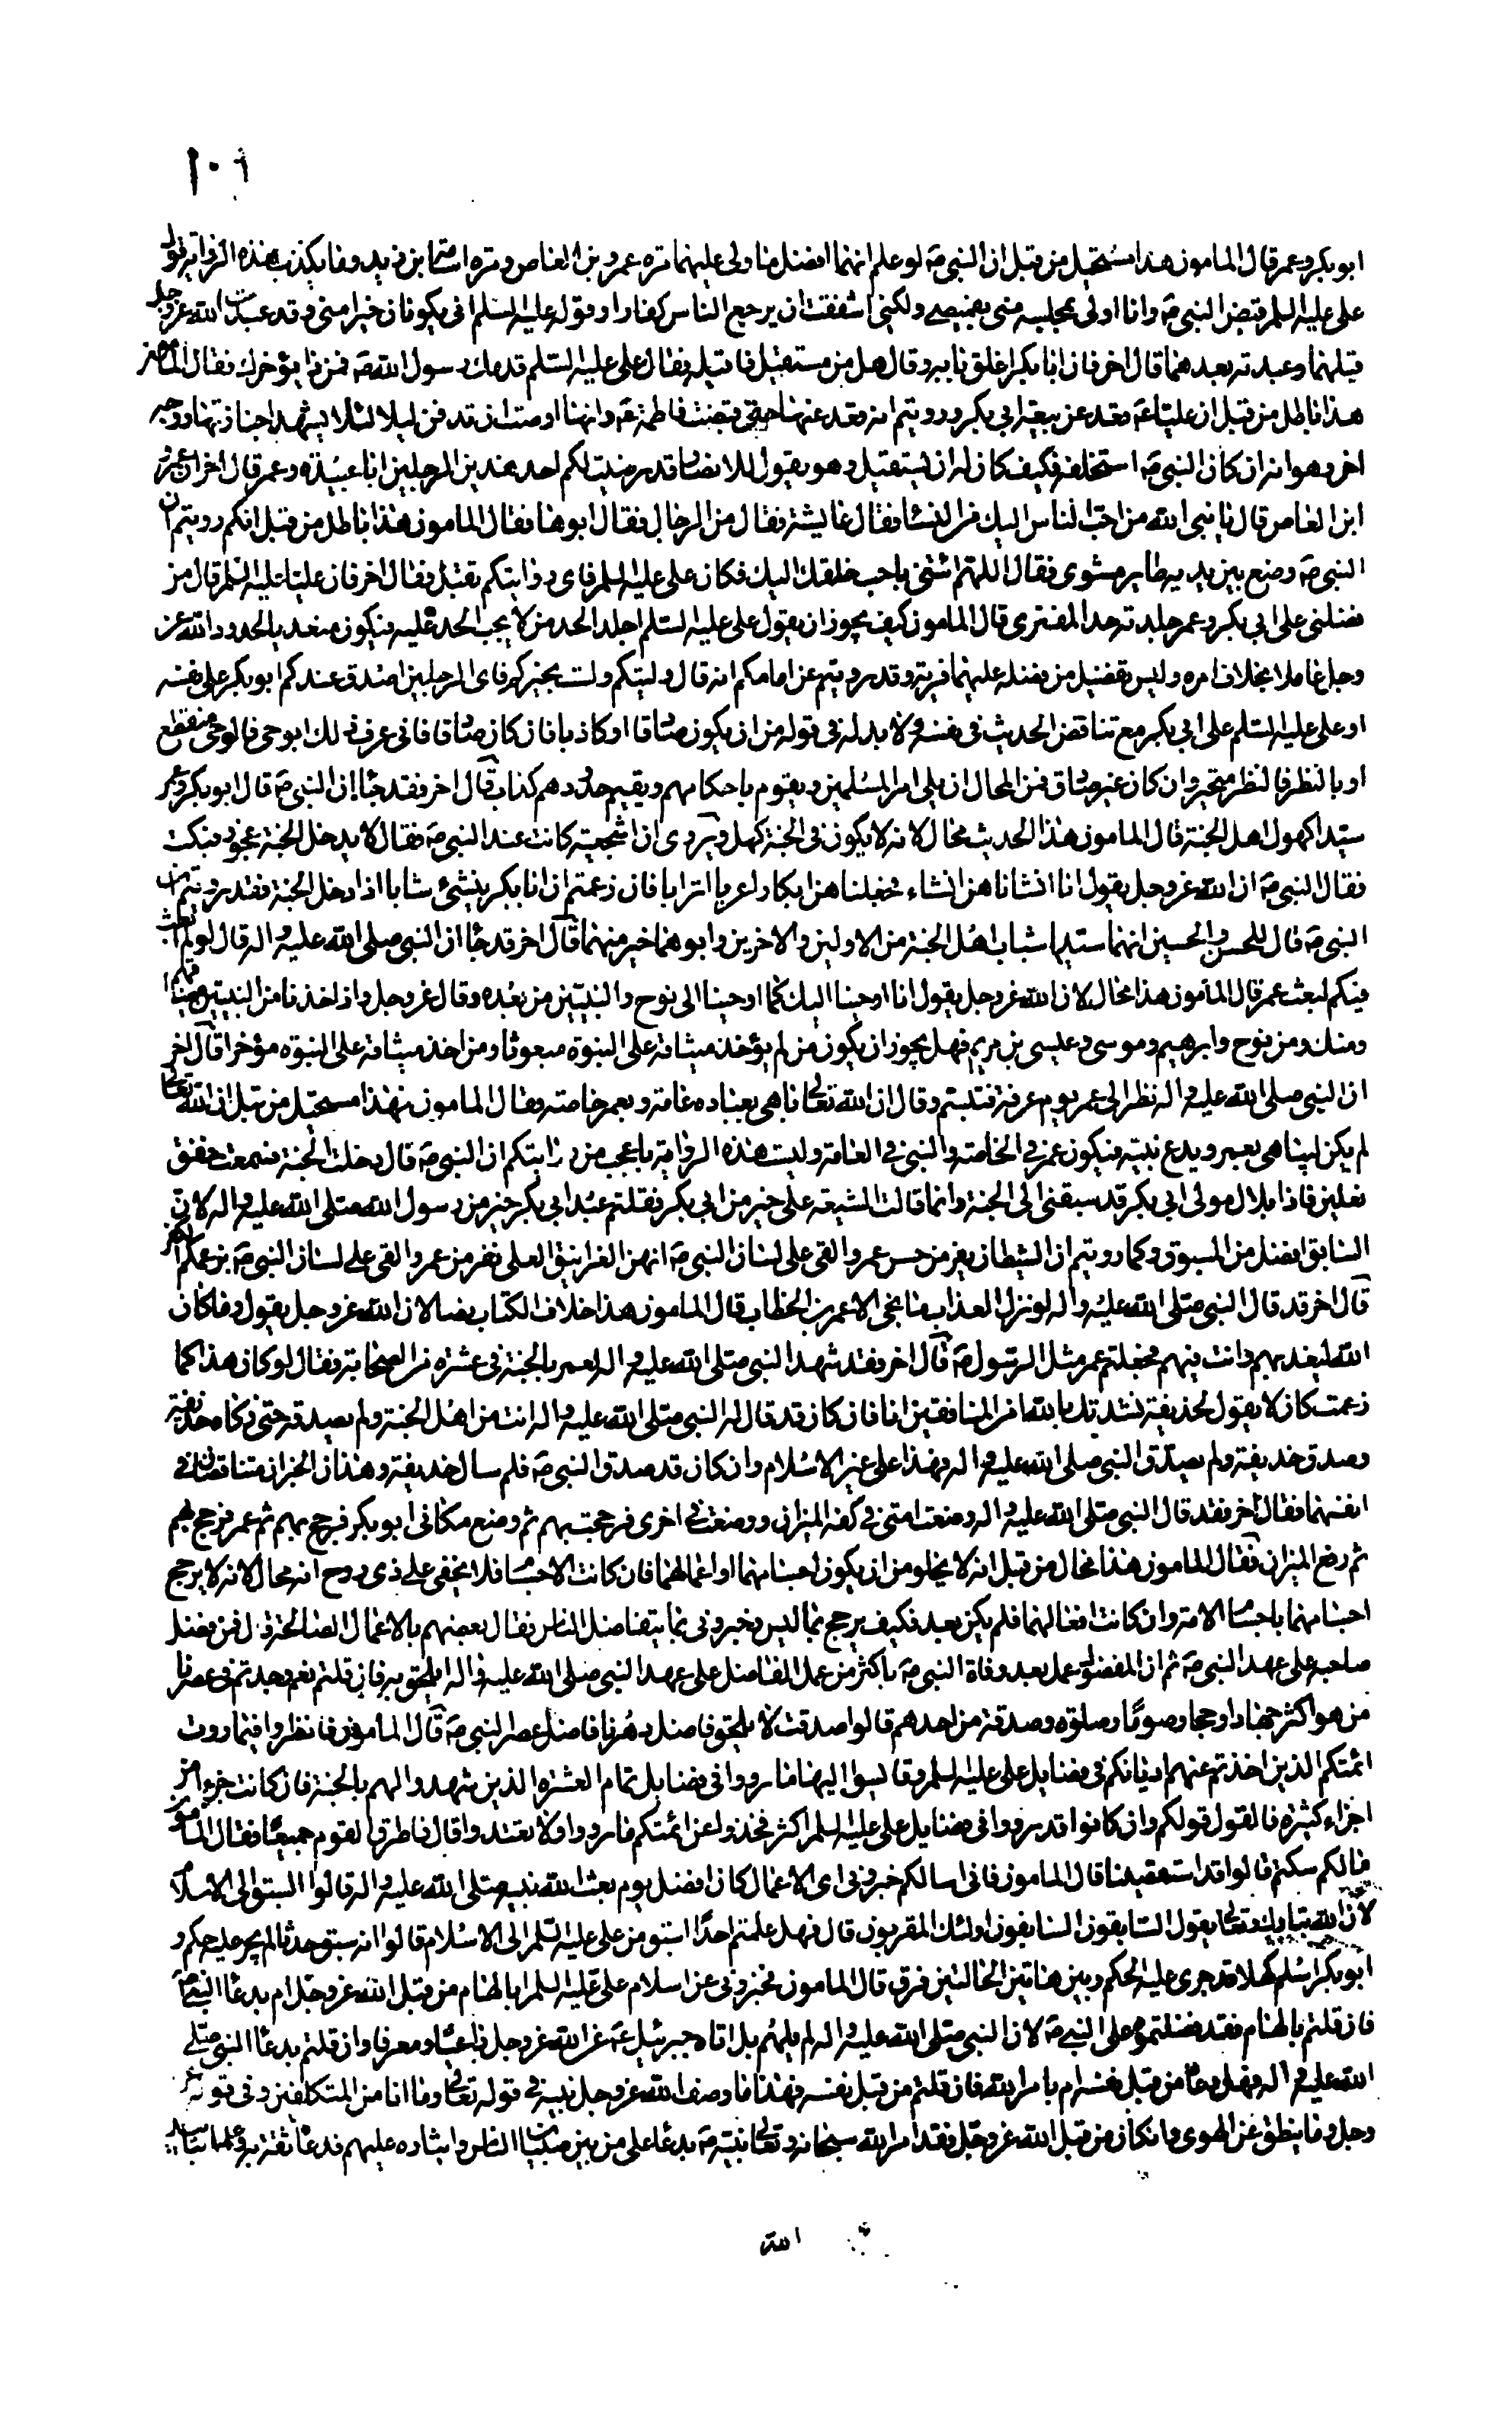 ١٠٦
ابو بكر و عمر قال المامون هذا مستحيل من قبل ان النبي صَ لو علم انهما افضل ما ولى عليهما مرة عمرو بن العاص و مرة اسامة بن زيد و مما يكذب هذه الرواية قول
على عليه السلم قبض النبي صَ و انا اولى بمجلسه منى بقميصي و لكني اشفقت ان يرجع الناس كفارا و قوله عليه السلم انى يكونان خيرا منى و قد عبدت الله عز و جل
قبلهما و عبدته بعدهما قال اخر فان ابا بكر اغلق بابه و قال هل من مستقيل فاقيله فقال على عليه السلم قدمك رسول الله صَ فمن ذا يؤخرك فقال المامون
هذا باطل من قبل ان عليا عَ قعد عن بيعة ابي بكر و رويتم انه قعد عنها حتى قبضت فاطمة عَ و انها اوصت ان تدفن ليلا لئلا يشهدا جنازتها و وجه
اخر و هو انه ان كان النبي صَ استخلفه فكيف كان له ان يستقيل و هو يقول للانصار قد رضيت لكم احد هذين الرجلين ابا عبيدة و عمر قال اخر ان عمرو
ابن العاص قال يا نبي الله من احب الناس اليك من النساء فقال عايشة فقال من الرجال فقال ابوها فقال المامون هذا باطل من قبل انكم رويتم ان
النبي صَ وضع بين يديه طاير مشوى فقال اللهم ائتنى باحب خلقك اليك فكان على عليه السلم فاى روايتكم يقبل فقال اخر فان عليا عليه السلم قال من
فضلنى على ابي بكر و عمر جلدته حد المفترى قال المامون كيف يجوز ان يقول على عليه السلم اجلد الحد من لا يجب الحد عليه فيكون متعديا لحدود الله عز
و جل عاملا بخلاف امره و ليس تفضيل من فضله عليهما فرية و قد رويتم عن امامكم انه قال وليتكم و لست بخيركم فاى الرجلين اصدق عندكم ابو بكر على نفسه
او على عليه السلم على ابي بكر مع تناقض الحديث في نفسه و لا بد له في قوله من ان يكون صادقا او كاذبا فان كان صادقا فانى عرف ذلك ابوحى فالوحى منقطع
او بالنظر فالنظر متحير و ان كان غير صادق فمن المحال ان يلى امر المسلمين و يقوم باحكامهم و يقيم حدودهم كذاب قال اخر فقد جاء ان النبي صَ قال ابو بكر و عمر
سيدا كهول اهل الجنة قال المامون هذا الحديث محال لانه لا يكون في الجنة كهل و يروى ان اشجعية كانت عند النبي صَ فقال لا يدخل الجنة عجوز فبكت
فقال النبي صَ ان الله عز و جل يقول انا انشاناهن انشاء فجعلناهن ابكارا عربا اترابا فان زعمتم ان ابا بكر ينشئ شابا اذا دخل الجنة فقد رويتم ان
النبي صَ قال للحسن و الحسين انهما سيدا شباب اهل الجنة من الاولين و الاخرين و ابوهما خير منهما قال اخر قد جاء ان النبي صلى الله عليه و اله قال لو لم ابعث
فيكم لبعث عمر قال المامون هذا محال لان الله عز و جل يقول انا اوحينا اليك كما اوحينا الى نوح و النبيين من بعده و قال عز و جل و اذ اخذنا من النبيين ميثاقهم
و منك و من نوح و ابرهيم و موسى و عيسى بن مريم فهل يجوز ان يكون من لم يؤخذ ميثاقه على النبوة مبعوثا و من اخذ ميثاقه على النبوة مؤخرا قال اخر
ان النبي صلى الله عليه و اله نظر الى عمر يوم عرفة فتبسم و قال ان الله تعالى باهى بعباده عامة و بعمر خاصة و قال المامون فهذا مستحيل من قبل ان الله تعالى
لم يكن ليباهى بعمر و يدع نبيه فيكون عمر في الخاصة و النبي في العامة و ليست هذه الرواية باعجب من روايتكم ان النبي صَ قال دخلت الجنة فسمعت خفق
نعلين فاذا بلال مولى ابي بكر قد سبقنى الى الجنة و انما قالت الشيعة على خير من ابي بكر فقلتم عبد ابي بكر خير من رسول الله صلى الله عليه و اله لان
السابق افضل من المسبوق و كما رويتم ان الشيطان يفر من حس عمر و القى على لسان النبي صَ انهن الغرانيق العلى ففر من عمر و القى على لسان النبي صَ بزعمكم الكفر
قال اخر قد قال النبي صلى الله عليه و اله لو نزل العذاب ما نجى الا عمر بن الخطاب قال المامون هذا خلاف الكتاب نصا لان الله عز و جل يقول و ما كان
الله ليعذبهم و انت فيهم فجعلتم عمر مثل الرسول صَ قال اخر فقد شهد النبي صلى الله عليه و اله لعمر بالجنة في عشرة من الصحابة فقال لو كان هذا كما
زعمت كان لا يقول لحذيفة نشدتك بالله امن المنافقين انا فان كان قد قال له النبي صلى الله عليه و اله انت من اهل الجنة و لم يصدقه حتى زكاه حذيفة
و صدق حذيفة و لم يصدق النبي صلى الله عليه و اله فهذا على غير الاسلام و ان كان قد صدق النبي صَ فلم سال حذيفة و هذان الخبران متناقضان في
انفسهما فقال اخر فقد قال النبي صلى الله عليه و اله وضعت امتى في كفه الميزان و وضعت في اخرى فرجحت بهم ثم وضع مكانى ابو بكر فرجح بهم ثم عمر فرجح بهم
ثم رفع الميزان فقال المامون هذا محال من قبل انه لا يخلو من ان يكون اجسامهما او اعمالهما فان كانت الاجسام فلا يخفى على ذى روح انه محال لانه لا يرجح
اجسامهما باجسام الامة و ان كانت افعالهما فلم يكن بعد فكيف يرجح بما ليس و خبرونى بما يتفاضل الناس فقال بعضهم بالاعمال الصالحة قال فمن فضل
صاحبه على عهد النبي صَ ثم ان المفضول عمل بعد وفاة النبي صَ باكثر من عمل الفاضل على عهد النبي صلى الله عليه و اله ايلحق به فان قلتم نعم وجدتم في عصرنا
من هو اكثر جهادا و حجا و صوما و صلوة و صدقة من احدهم قالوا صدقت لا يلحق فاضل دهرنا فاضل عصر النبي صَ قال المامون فانظروا فيما روت
ائمتكم الذين اخذتم عنهم اديانكم في فضايل على عليه السلم و قايسوا اليها ما رووا في فضايل تمام العشرة الذين شهدوا لهم بالجنة فان كانت جزءا من
اجزاء كثيرة فالقول قولكم و ان كانوا قد رووا في فضايل على عليه السلم اكثر فخذوا عن ائمتكم ما رووا و لا تعتدوا قال فاطرق القوم جميعا فقال المامون
مالكم سكتم قالوا قد استقصينا قال المامون فانى اسالكم خبرونى اى الاعمال كان افضل يوم بعث الله نبيه صلى الله عليه و اله قالوا السبق الى الاسلام
لان الله تبارك و تعالى يقول السابقون السابقون اولئك المقربون قال فهل علمتم احدا اسبق من على عليه السلم الى الاسلام قالوا انه سبق حدثا لم يجر عليه حكم و
ابو بكر اسلم كهلا قد جرى عليه الحكم و بين هاتين الحالتين فرق قال المامون فخبرونى عن اسلام على عليه السلم ابالهام من قبل الله عز و جل ام بدعاء النبي صَ
فان قلتم بالهام فقد فضلتموه على النبي صَ لان النبي صلى الله عليه و اله لم يلهم بل اتاه جبرئيل عَ عن الله عز و جل داعيا و معرفا و ان قلتم بدعاء النبي صلى
الله عليه و اله فهل دعاه من قبل نفسه ام بامر الله فان قلتم من قبل نفسه فهذا ما وصف الله عز و جل نبيه في قوله تعالى و ما انا من المتكلفين و في قوله عز
و جل و ما ينطق عن الهوى و ان كان من قبل الله عز و جل فقد امر الله سبحانه و تعالى نبيه صَ بدعاء على من بين صبيان الناس و ايثاره عليهم فدعاه ثقة به و علما بتاييد
الله